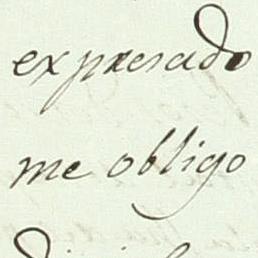 expresado
me obligo